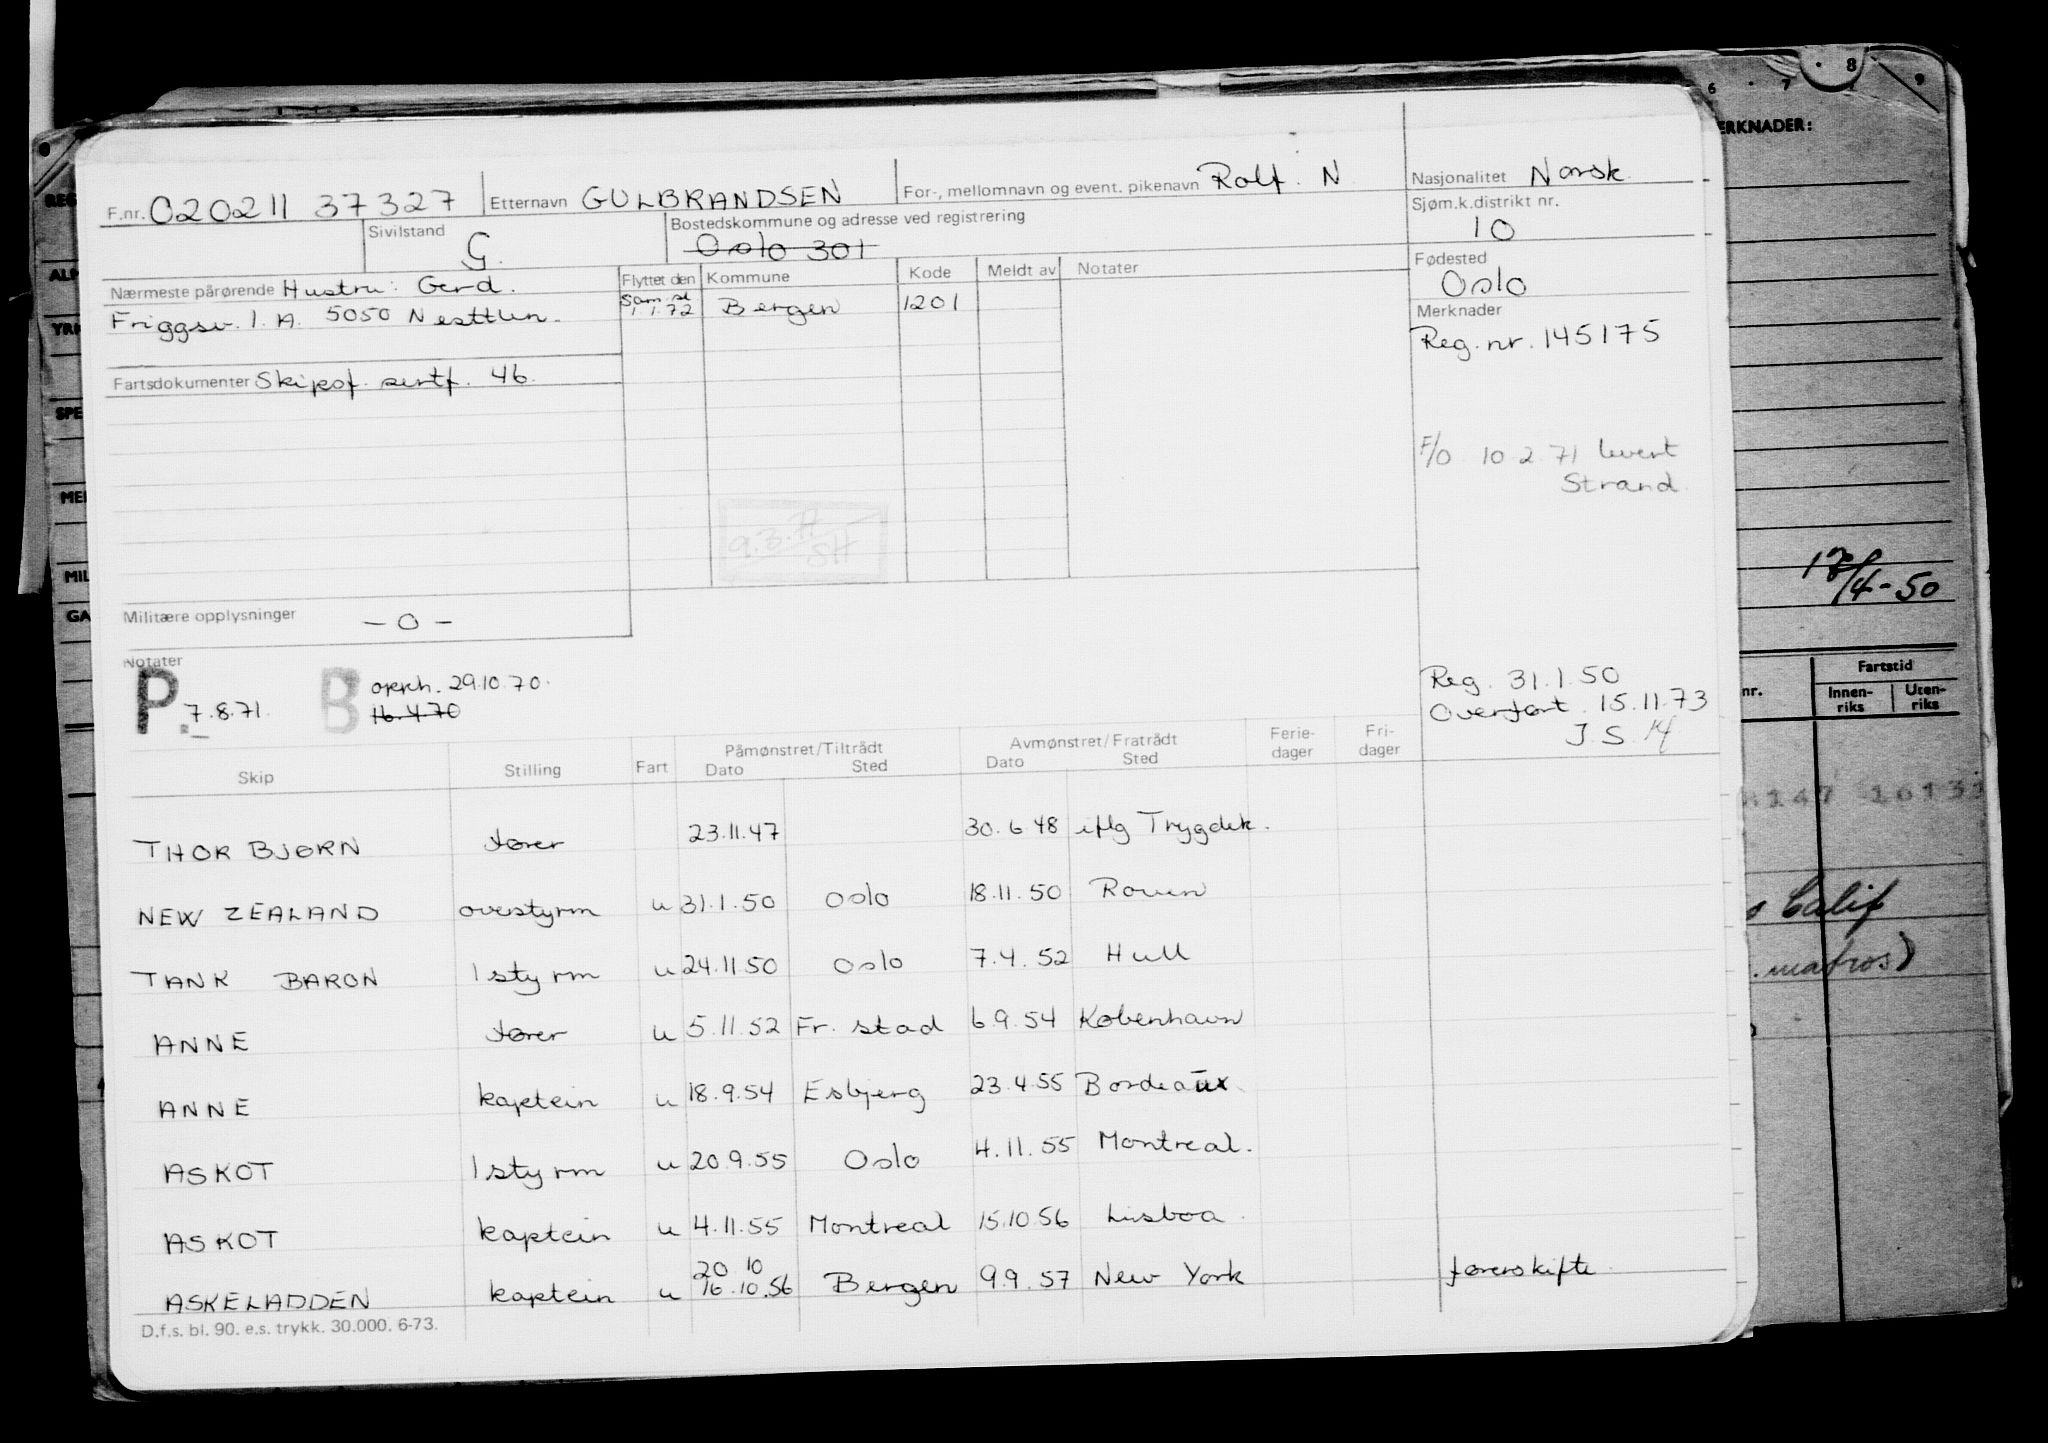 F.nr. 020211 37327 Etternavn GULBRANDSEN For-, mellomnavn og event. pikenavn Rolf. N Nasjonalitet Norsk.
Sivilstand G. Bostedskommune og adresse ved registrering Oslo 301 Sjøm.k.distrikt nr. 10
Nærmeste pårørende Hustru: Gerd. Flyttet den Kommune Kode Meldt av Notater Fødested Oslo
Friggsv. 1. A. 5050 Nesttun. 1.1.72 Bergen 1201 Merknader
Reg. nr. 145175
Fartsdokumenter Skipsf. sertf. 46.
F/O 10.2.71 levert
Strand.
9.3.71 SH
Militære opplysninger – 0 –
Notater
P. 7.8.71. B opph. 29.10.70.
16.4.70
Reg. 31.1.50
Overført. 15.11.73
J.S.
Skip Stilling Fart Påmønstret/Tiltrådt Dato Sted Avmønstret/Fratrådt Dato Sted Ferie-dager Fri-dager
THORBJØRN fører 23.11.47 30.6.48 iflg Trygdek.
NEW ZEALAND ovestyrm u 31.1.50 Oslo 18.11.50 Rouen
TANK BARON 1styrm u 24.11.50 Oslo 7.4.52 Hull
ANNE fører u 5.11.52 Fr. stad 6.9.54 København
ANNE kaptein u 18.9.54 Esbjerg 23.4.55 Bordeaux
ASKOT 1styrm u 20.9.55 Oslo 4.11.55 Montreal.
ASKOT kaptein u 4.11.55 Montreal 15.10.56 Lisboa.
20 10
ASKELADDEN kaptein u 16.10.56 Bergen 9.9.57 New York førerskifte
D.f.s. bl. 90. e.s. trykk. 30.000. 6-73.
6 7 8 9
ERKNADER:
REG
ALM
YRK
SPE
MEI
MIL
GA
/4-50
nr. Fartstid
Innen-riks Uten-riks
Calif
.matros)